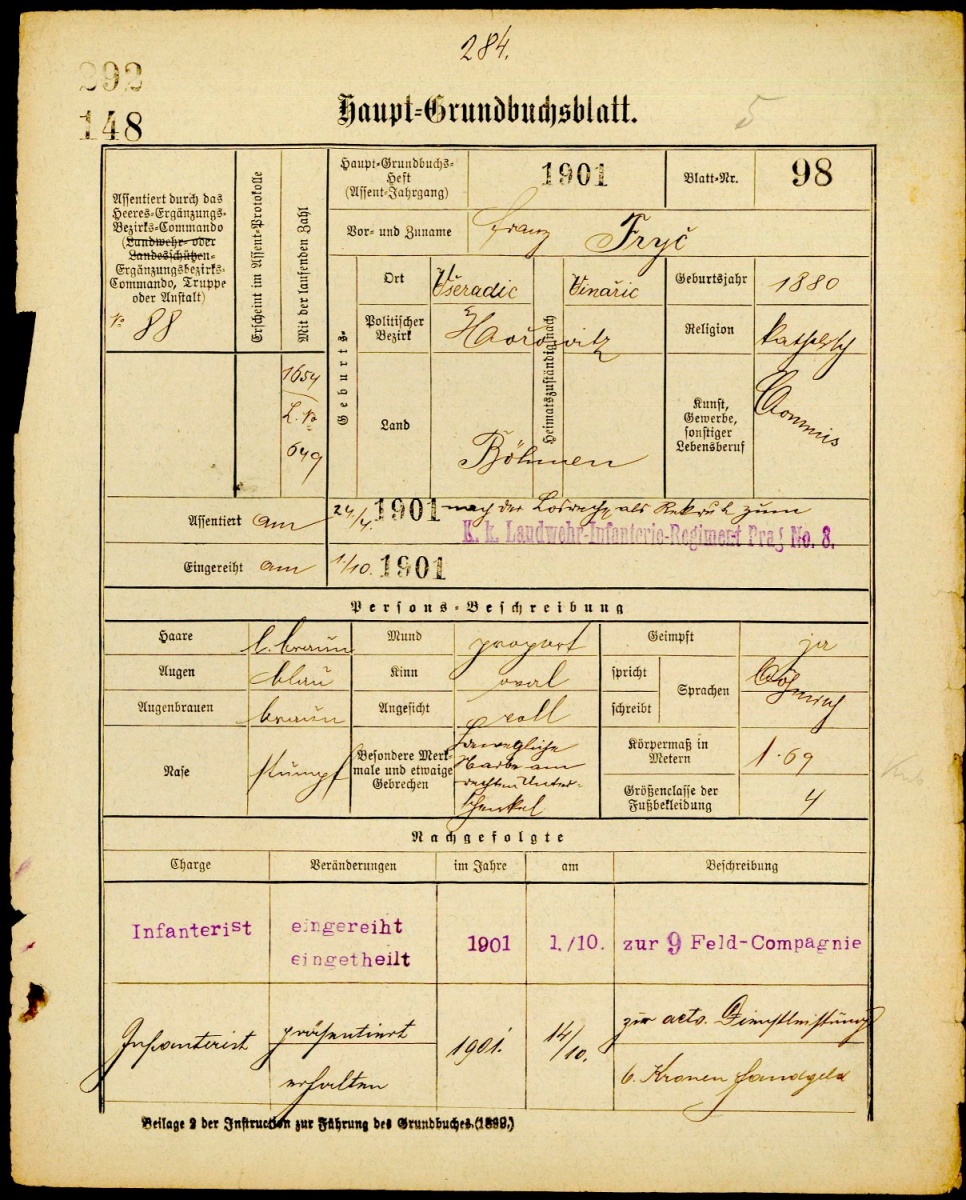 284.
292
148
Haupt-Grundbuchsblatt.
5
Assentiert durch das
Heeres-Ergänzungs-
Bezirks-Commando
(Landwehr- oder
Landesschützen-
Ergänzungsbezirks-
Commando, Truppe
oder Anstalt)
No 88
Erscheint im Assent-Protokolle
Mit der laufenden Zahl
1654
L. No
649
Haupt-Grundbuchs-
Heft
(Assent-Jahrgang)
1901
Blatt-Nr.
98
Vor- und Zuname
Franz Fryč
Geburts-
Ort
Všeradic
Heimatszuständig nach
Vinařic
Geburtsjahr
1880
Politischer
Bezirk
Hořowitz
Religion
katholisch
Land
Böhmen
Kunst,
Gewerbe,
sonstiger
Lebensberuf
Commis
Assentiert am 24./4. 1901 nach der als Rekrut zum
K. k. Landwehr-Infanterie-Regiment Prag No. 8.
Eingereiht am 1./10. 1901
Persons-Beschreibung
Haare
l. braun
Mund
proport
Geimpft
ja
Augen
blau
Kinn
oval
spricht
schreibt
Sprachen
Böhmisch
Augenbrauen
braun
Angesicht
voll
Nase
stumpf
Besondere Merk-
male und etwaige
Gebrechen
bewegliche
Narbe am
rechten Unter-
schenkel
Körpermaß in
Metern
1.69
Größenclasse der
Fußbekleidung
4
Nachgefolgte
Charge
Veränderungen
im Jahre
am
Beschreibung
Infanterist
eingereiht
eingetheilt
1901
1./10.
zur 9 Feld-Compagnie
Infanterist
präsentiert
erhalten
1901.
14/10.
zur activ. Dienstleistung
6 Kronen Handgeld
Beilage 2 der Instruction zur Führung des Grundbuches (1889.)